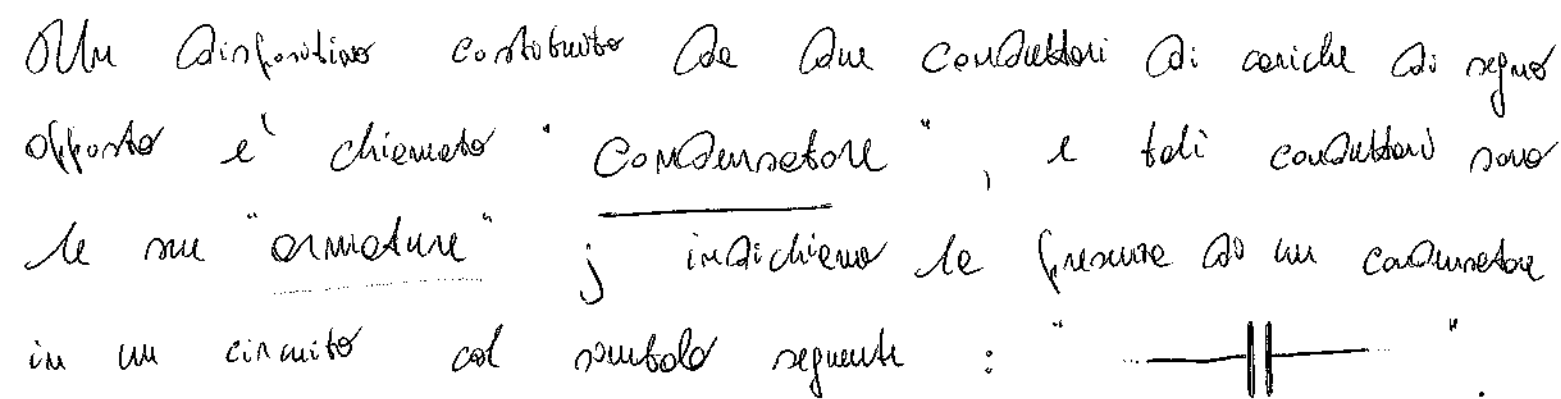 Un dispositivo costituito da due conduttori di cariche di segno
opposto e' chiamato "condensatore", e tali conduttori sono
le sue "armature"; indichiamo la presenza di un condensatore
in un circuito col simbolo seguente : " ".